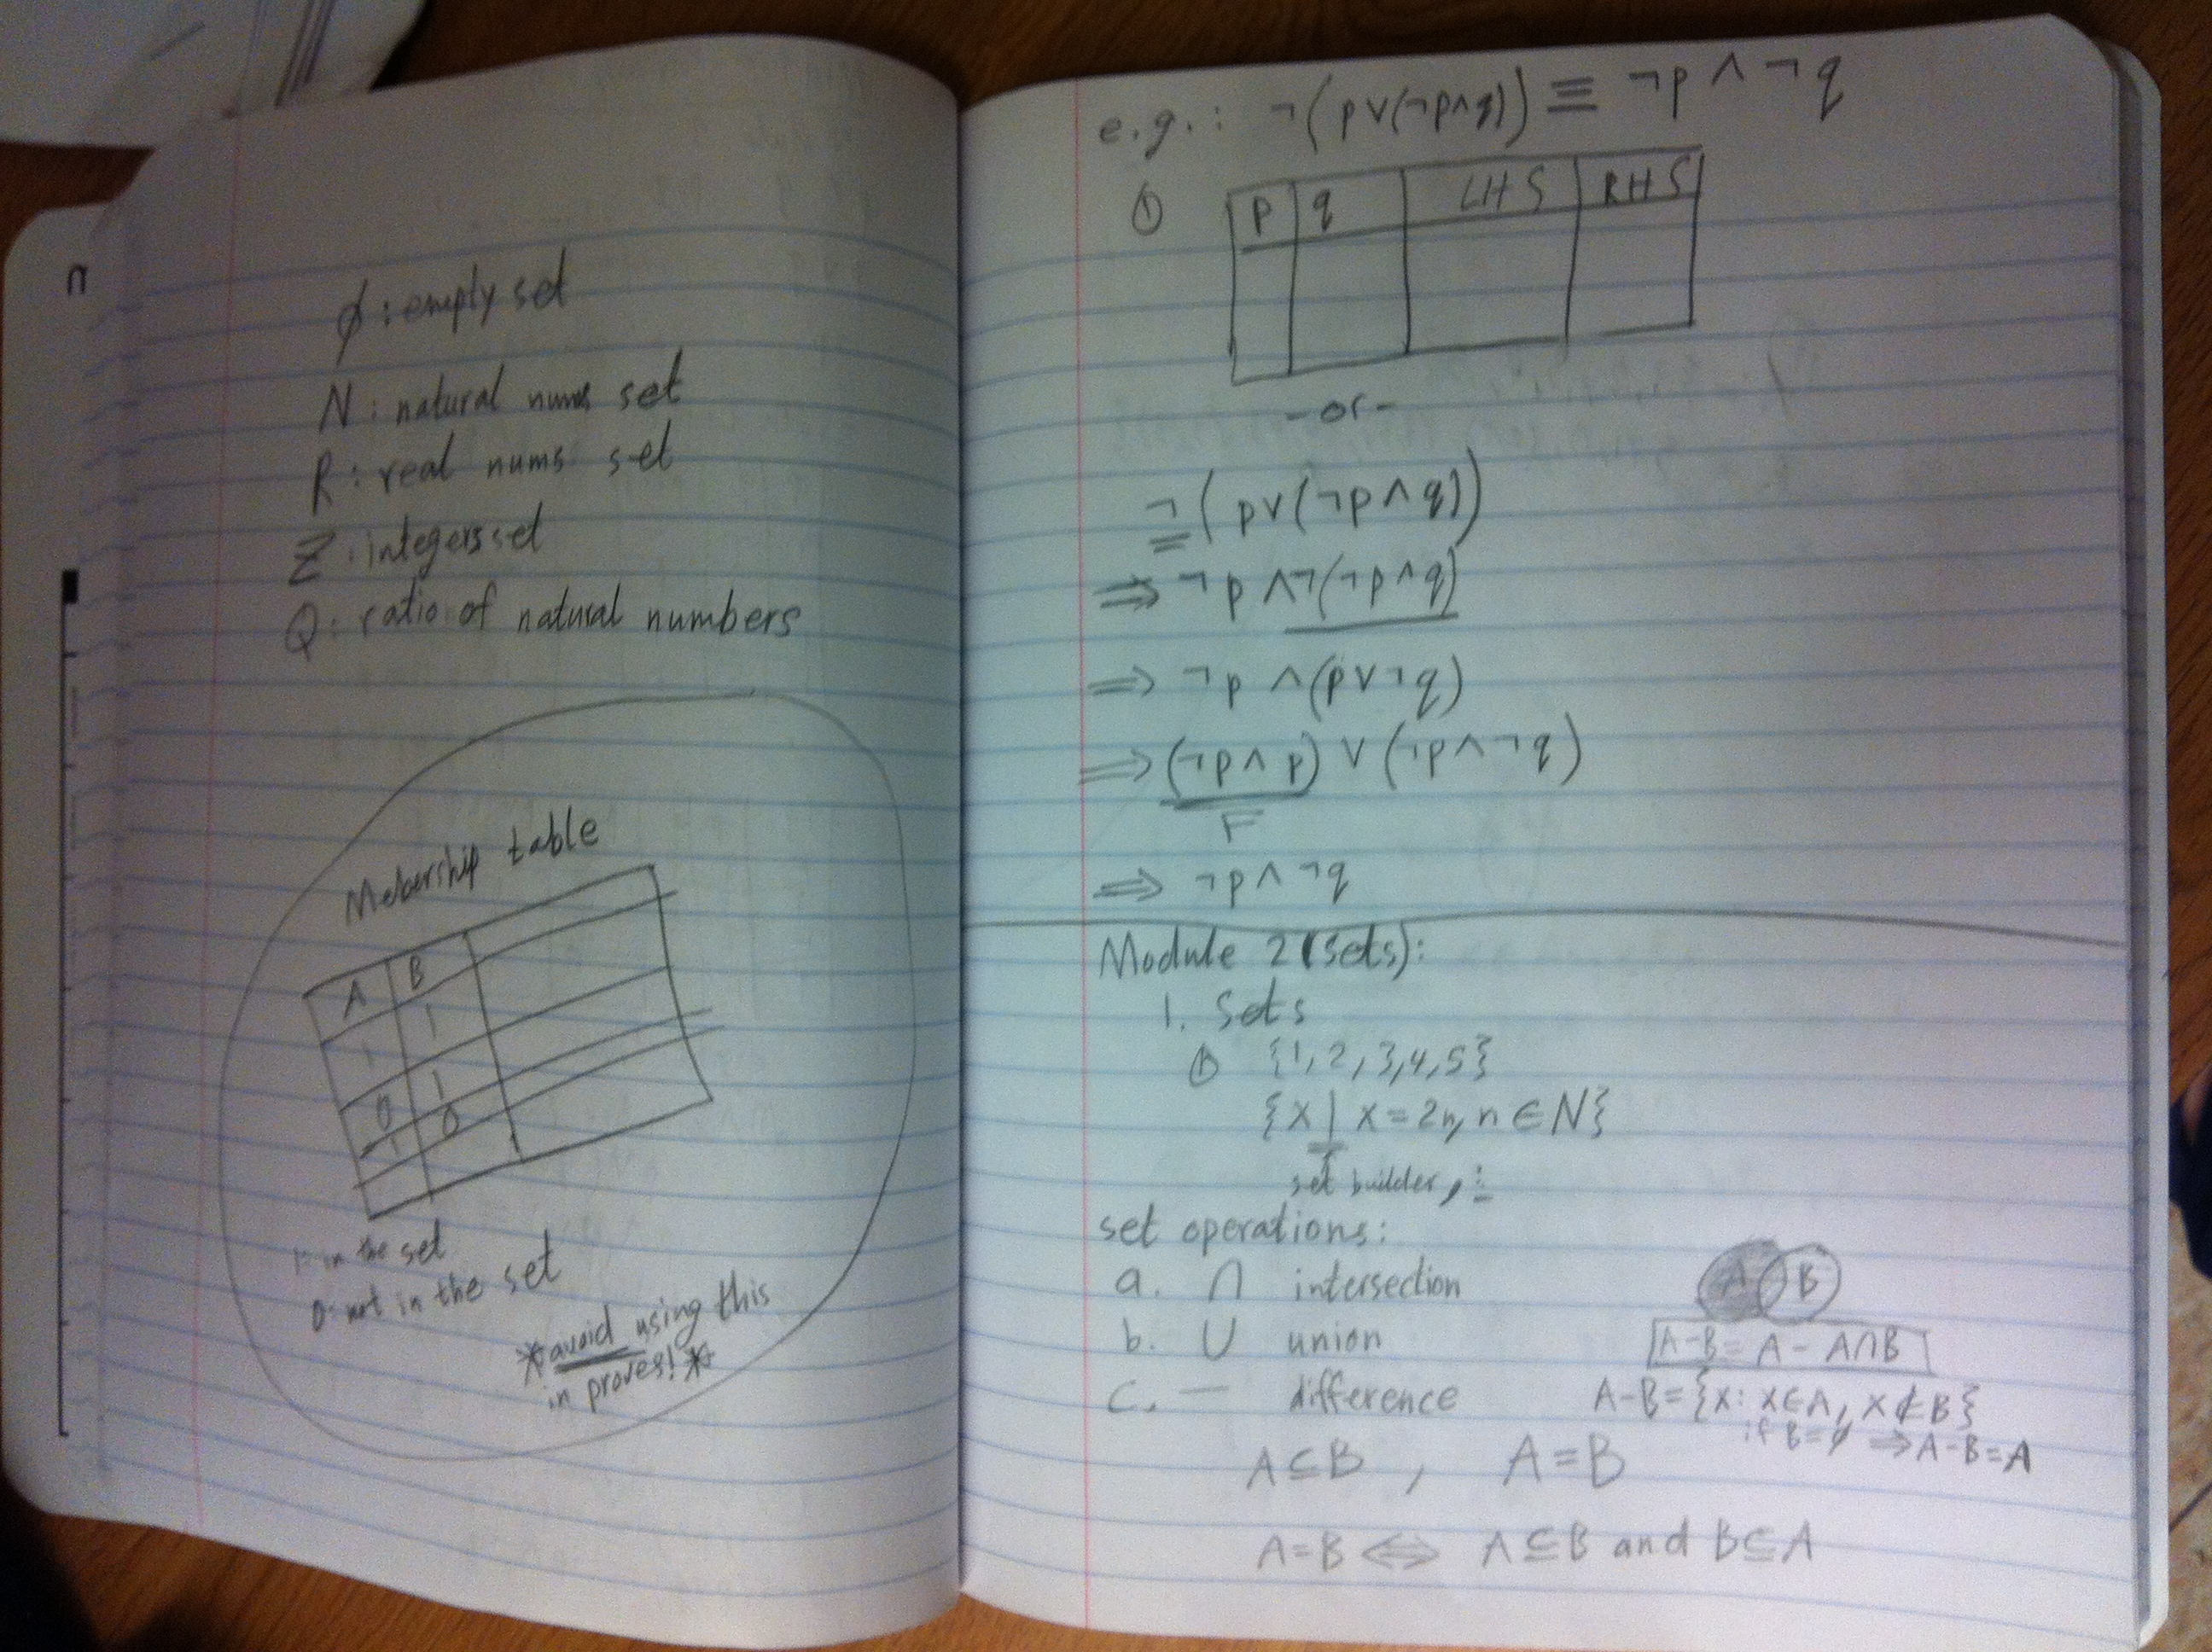 ∅: empty set
N: natural nums set
R: real nums set
Z: integers set
Q: ratio of natural numbers
Mebership table
A B
1 1
0 1
1 0
1: in the set
0: not in the set
*avoid using this
in proves!*
e.g.: ¬(p∨(¬p∧q)) ≡ ¬p ∧ ¬q
① P q LHS RHS
-or-
¬(p∨(¬p∧q))
⇒ ¬p ∧¬(¬p∧q)
⇒ ¬p ∧(p∨¬q)
⇒ (¬p∧p) ∨ (¬p∧¬q)
F
⇒ ¬p∧¬q
Module 2 (sets):
1. Sets
① {1,2,3,4,5}
{x | x=2n, n∈N}
set builder, :
set operations:
a. ∩ intersection
A B
b. ∪ union
A-B= A - A∩B
c. — difference
A-B={x: x∈A, x∉B}
if B=∅ ⇒A-B=A
A⊆B , A=B
A=B ⇔ A⊆B and B⊆A